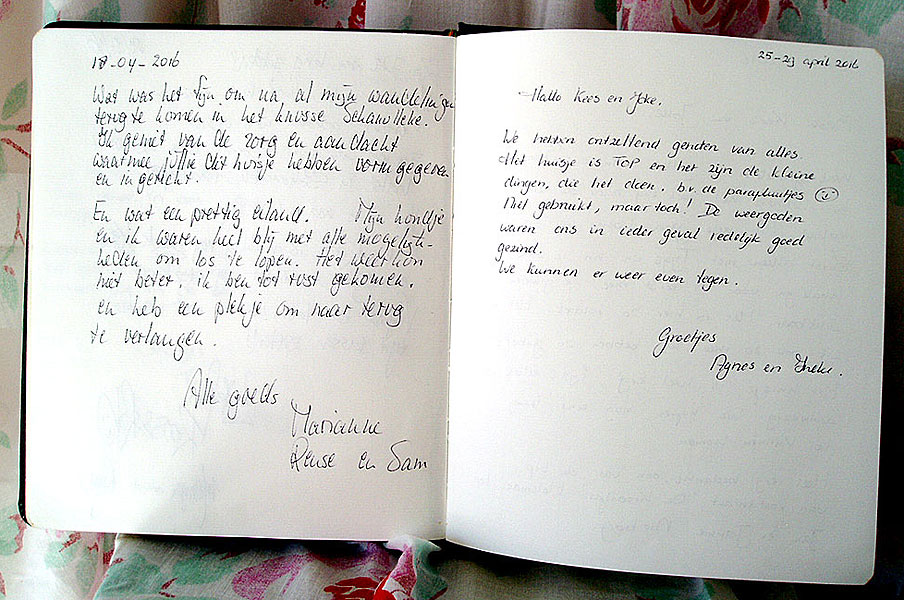 18-04-2016
Wat was het fijn om na al mijn wandelingen
terug te komen in het knusse Schanulleke.
Ik geniet van de zorg en aandacht
waarmee jullie dit huisje hebben vormgegeven
en ingericht.
En wat een prettig eiland. Mijn hondje
en ik waren heel blij met alle mogelijk-
heden om los te lopen. Het weer kon
niet beter. ik ben tot rust gekomen.
en heb een plekje om naar terug
te verlangen.
Alle goeds
Marianne
Rense en Sam
25-29 april 2016
Hallo Kees en Joke.
We hebben ontzettend genoten van alles
Het huisje is TOP en het zijn de kleine
dingen, die het doen. b.v. de parapluutjes
Niet gebruikt, maar toch! De weergoden
waren ons in ieder geval redelijk goed
gezind.
We kunnen er weer even tegen.
Groetjes
Agnes en